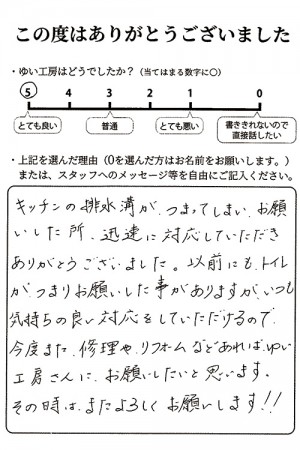 この度はありがとうございました
・ゆい工房はどうでしたか？（当てはまる数字に○）
5 4 3 2 1 0
とても良い 普通 とても悪い 書ききれないので直接話したい
・上記を選んだ理由（0を選んだ方はお名前をお願いします。）
または、スタッフへのメッセージ等を自由にご記入ください。
キッチンの排水溝が、つまってしまい、お願
いした所、迅速に対応していただき
ありがとうございました。以前にも、トイレ
がつまりお願いした事がありますが、いつも
気持ちの良い対応をしていただけるので、
今度また、修理や、リフォームなどあれば、ゆい
工房さんに、お願いしたいと思います。
その時は、またよろしくお願いします!!